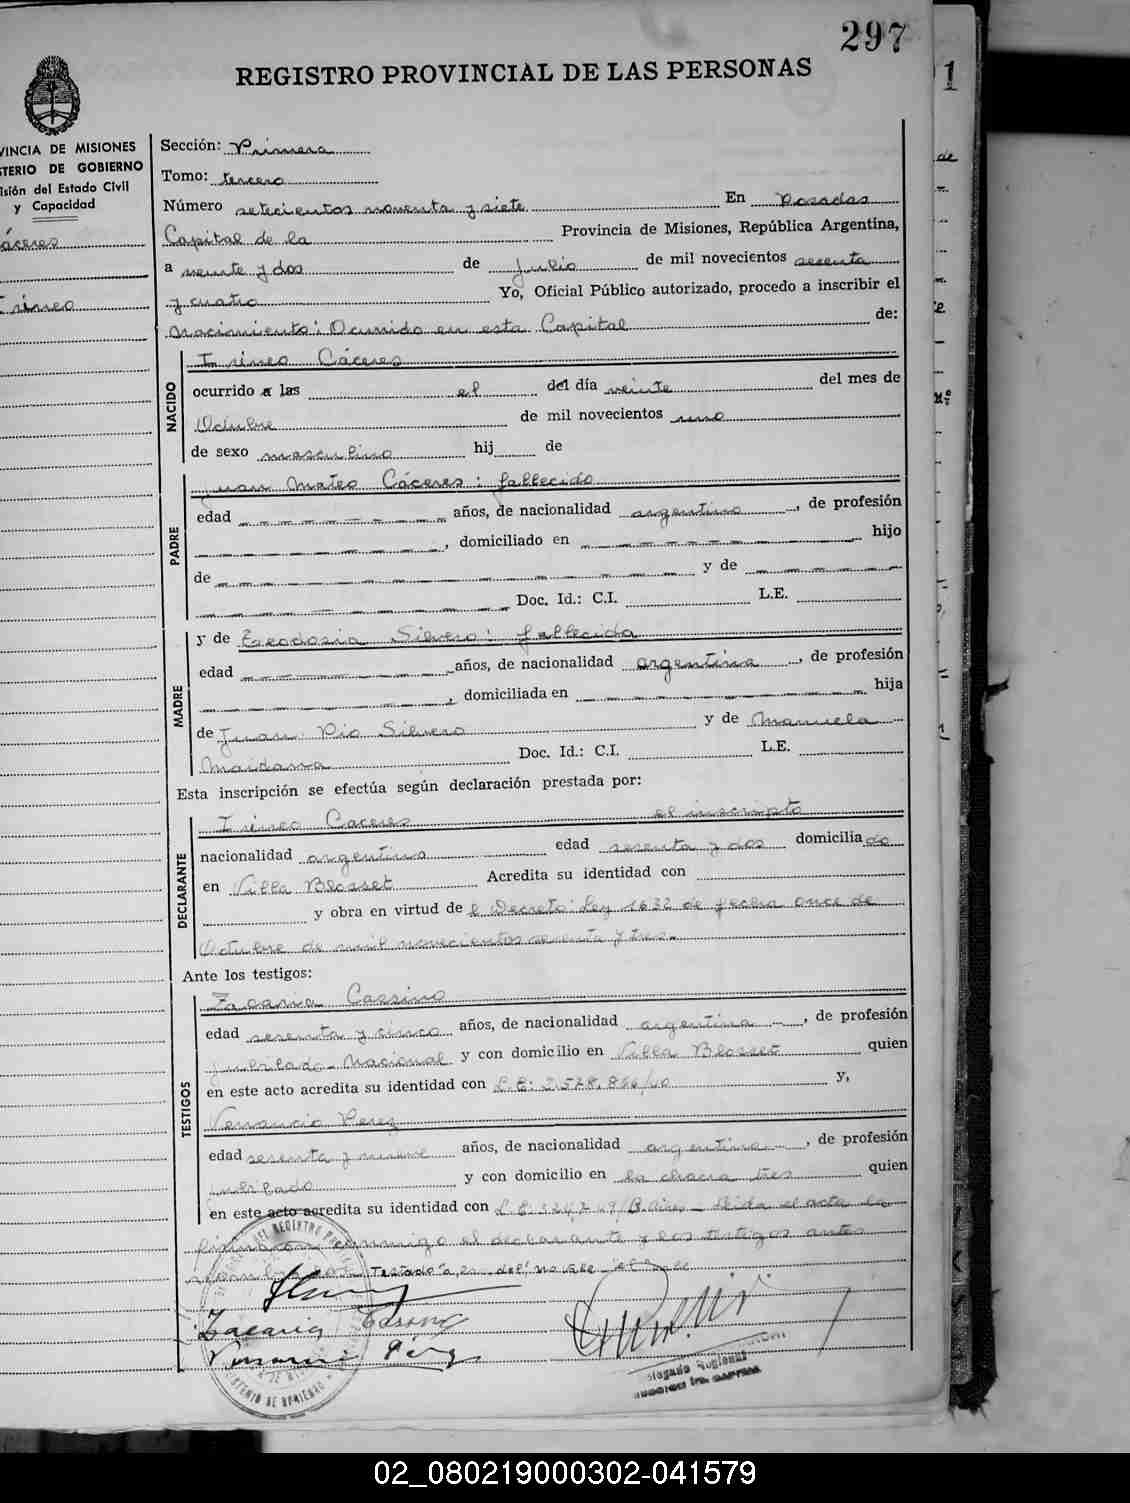 297
REGISTRO PROVINCIAL DE LAS PERSONAS
1
VINCIA DE MISIONES
STERIO DE GOBIERNO
isión del Estado Civil
y Capacidad
áceres
Irineo
Sección: Primera
Tomo: tercero
Número setecientos noventa y siete En Posadas
Capital de la Provincia de Misiones, República Argentina,
a veinte y dos de Julio de mil novecientos sesenta
y cuatro Yo, Oficial Público autorizado, procedo a inscribir el
Nacimiento: Ocurrido en esta Capital de:
NACIDO
Irineo Cáceres
ocurrido a las el del día veinte del mes de
Octubre de mil novecientos uno
de sexo masculino hij de
PADRE
Juan Mateo Cáceres: fallecido
edad años, de nacionalidad argentino, de profesión
, domiciliado en hijo
de y de
Doc. Id.: C.I. L.E.
MADRE
y de Teodosia Silvero: fallecida
edad años, de nacionalidad argentina, de profesión
, domiciliada en hija
de Juan Pio Silvero y de Manuela
Maidana Doc. Id.: C.I. L.E.
Esta inscripción se efectúa según declaración prestada por:
DECLARANTE
Irineo Caceres el inscripto
nacionalidad argentino edad sesenta y dos domiciliado
en Villa Blosset Acredita su identidad con
y obra en virtud del Decreto: Ley 1632 de fecha once de
Octubre de mil novecientos sesenta y tres.
Ante los testigos:
TESTIGOS
Zacaria
edad sesenta y cinco años, de nacionalidad argentina, de profesión
jubilado Nacional y con domicilio en Villa Blosset quien
en este acto acredita su identidad con L.E. y,
Venancio Perez
edad sesenta y nueve años, de nacionalidad argentina, de profesión
jubilado y con domicilio en la chacra tres quien
en este acto acredita su identidad con L.E. B. Aires - Leida el acta la
firmaron conmigo el declarante y los testigos antes
Testado "a, es del", no vale
Zacaria
Delegado Regional
02_080219000302-041579